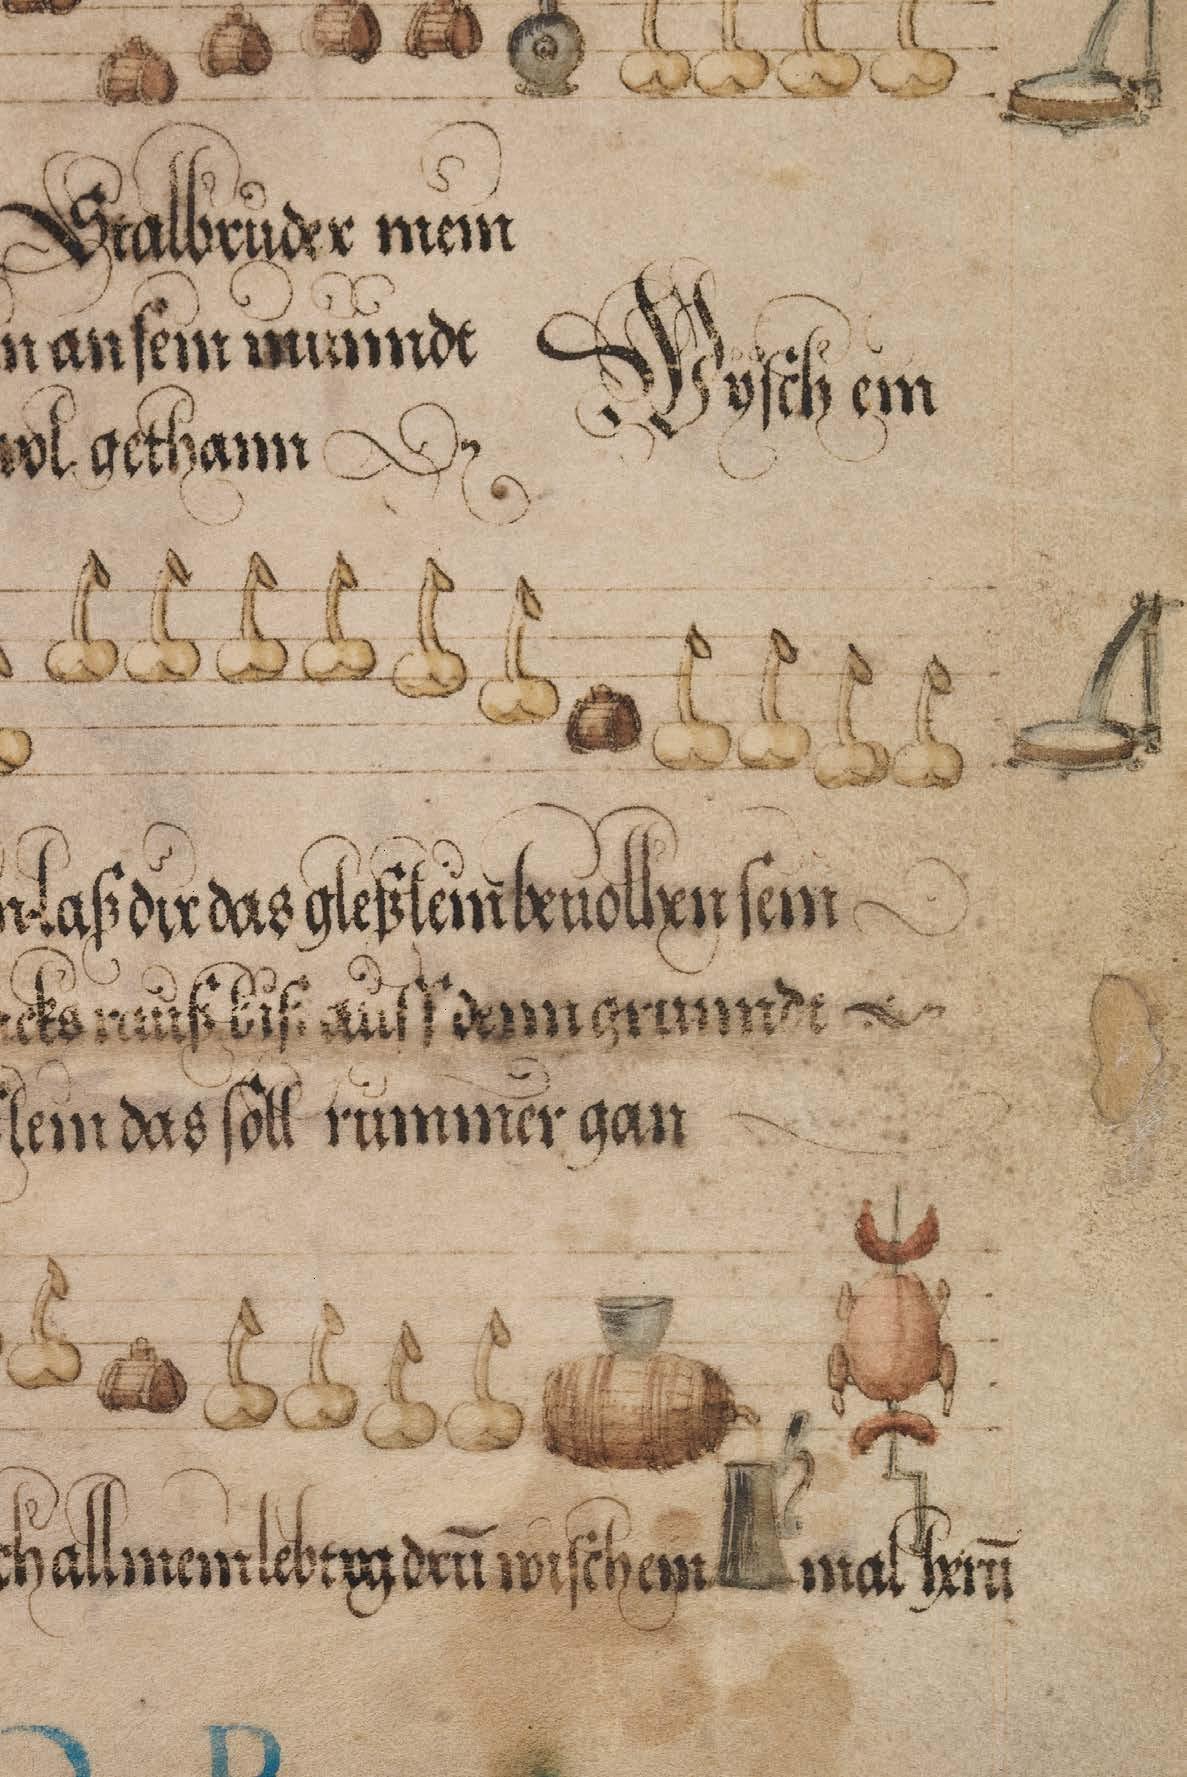 Stalbruder mein
n an sein munndt
wol gethann
Wysch ein
n. laß dir das gleßlein beuolhen sein
cks rauß biß auff denn grunndt
lein das soll rummer gan
ch all mein lebtag drū wisch ein mal herū
R